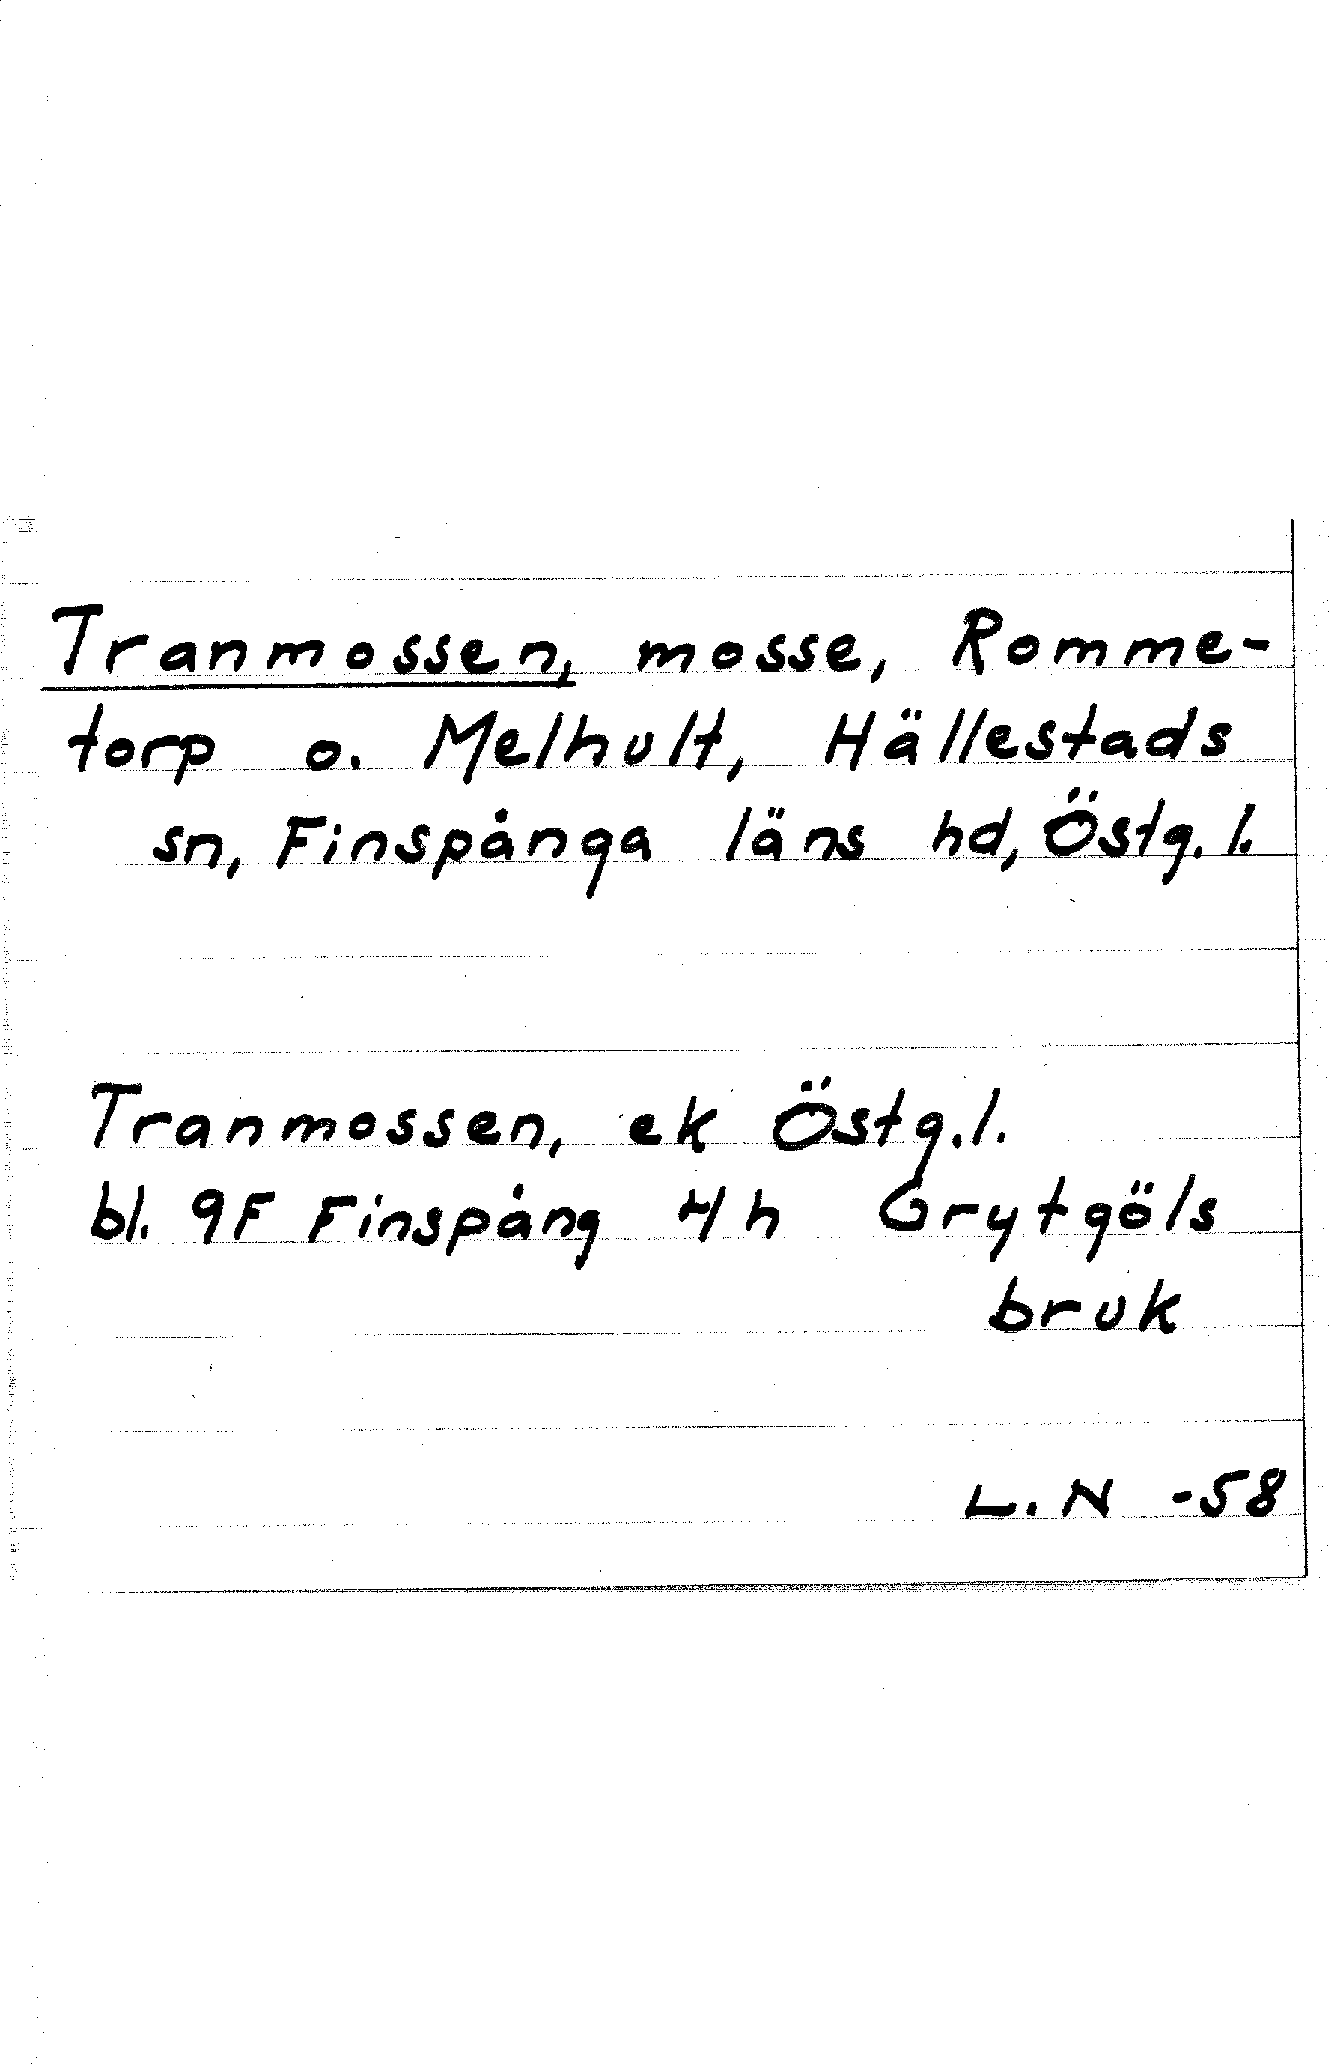 Tranmossen, mosse, Romme-
torp o. Melhult, Hällestads
sn, Finspånga läns hd, Östg. l.
Tranmossen, ek Östg. l.
bl. 9F Finspång 4h Grytgöls
bruk
L. N -58